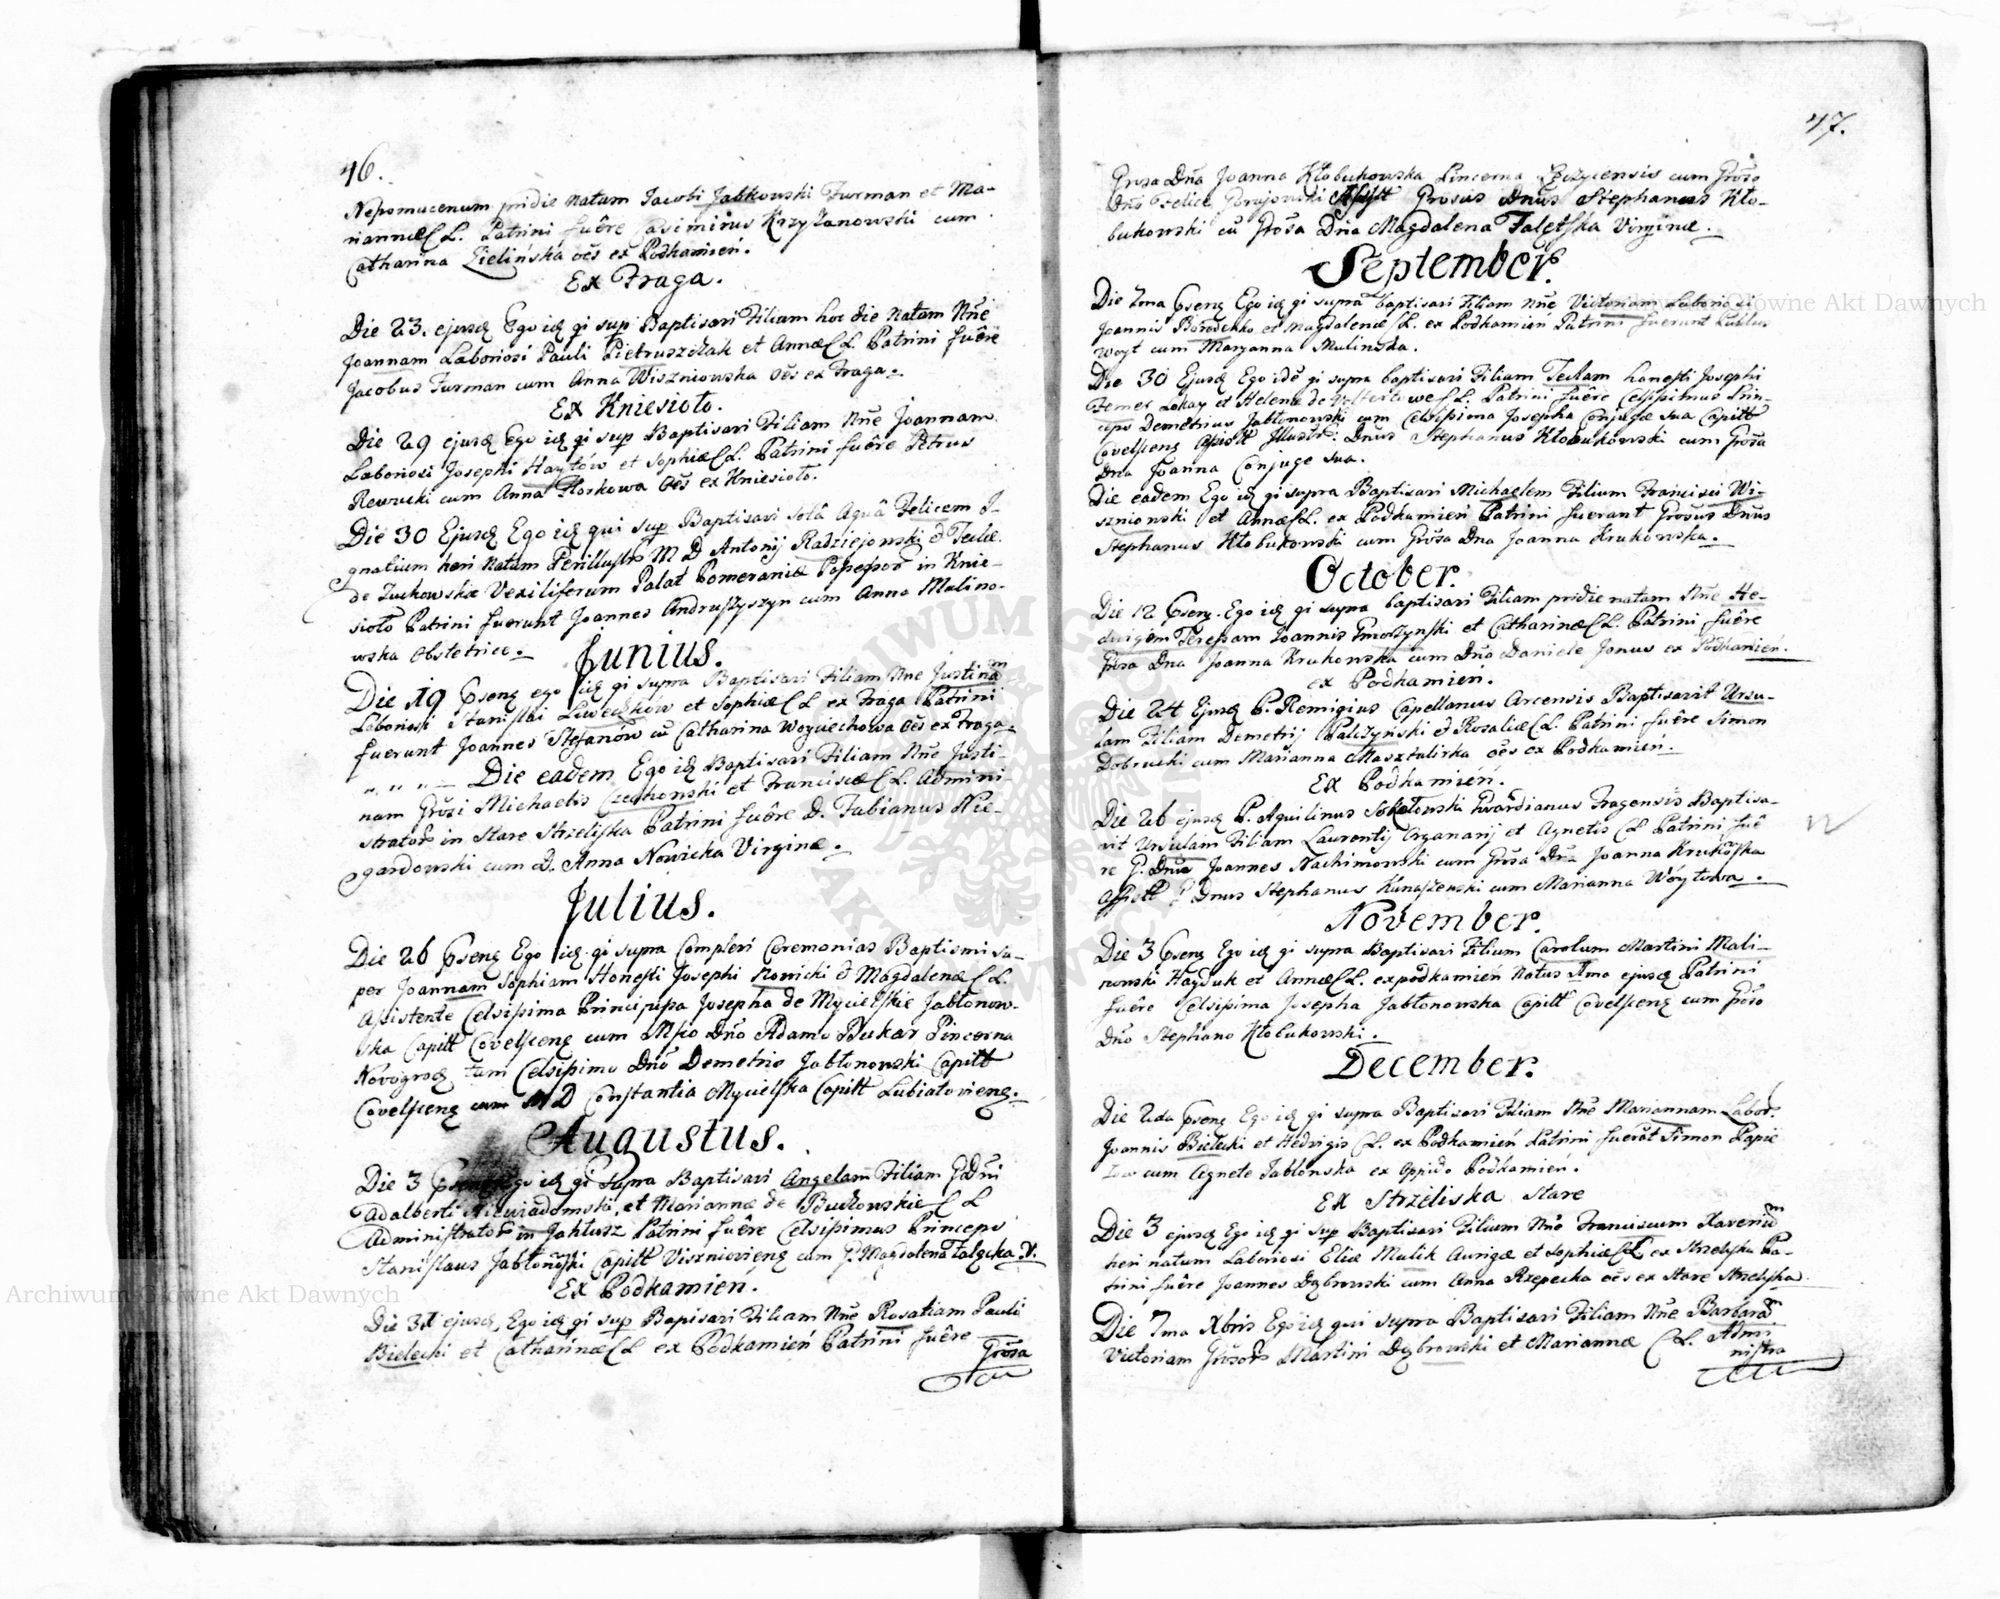 46.
Nepomucenum pridie natum Jacobi Jabłkowski Furman et Ma-
riannæ C L. Patrini fuêre Casimirus Krzyżanowski cum
Catharina Zielińska oẽs ex Podkamień.
Ex Fraga.
Die 23. ejusq Ego idq qi sup Baptisavi Filiam hoc die natam Nñe
Joannam Laboriosi Pauli Pietruszczak et Annæ C L. Patrini fuêre
Jacobus Furman cum Anna Wiszniowska oẽs ex Fraga.
Ex Kniesioło.
Die 29 ejusq Ego idq qi sup Baptisavi Filiam Nñe Joannam
Laboriosi Josephi Haytów et Sophiæ C L. Patrini fuêre Petrus
cum Anna oẽs ex Kniesioło.
Die 30 Ejusq Ego idq qui sup Baptisavi solâ Aquâ Felicem I-
gnatium heri natum Perillustris M D Antonij Radziejowski & Teclæ
de Żuchowskie Vexiliferum Palat Pomeraniæ Possessor in Knie-
sioło Patrini fuerunt Joannes Andruszyszyn cum Anna Malino-
wska Obstetrice.
Junius.
Die 19 Psenq ego idq qi supra Baptisavi Filiam Nñe Justinam
Laboriosi Stanislai et Sophiæ C L ex Fraga Patrini
fuerunt Joannes Stefanów cũ Catharina Woyciechowa oẽs ex Fraga.
" " " — Die eadem Ego idq Baptisavi Filiam Nñe Justi-
nam Grõsi Michaelis Czechowski et Franciscæ C L. Admini-
strator in Stare Strzeliska Patrini fuêre D. Fabianus Nie-
gardowski cum D. Anna Nowicka Virginæ.
Julius.
Die 26 Psenq Ego idq qi supra Complevi Ceremonias Baptismi su-
per Joannam Sophiam Honesti Josephi Nowicki & Magdalenæ C L.
Assistente Celsissima Principissa Josepha de Mycielskie Jabłonow-
ska Capitt Covelsenq cum Msco Dño Adamo Bukar Pincerna
Novogrod tum Celsissimo Dño Demetrio Jabłonowski Capitt
Covelsenq cum M D Constantia Mycielska Capitt Lubiatovienq.
Augustus.
Die 3 Psenq Ego idq qi supra Baptisavi Angelam Filiam G Dñi
Adalberti Niewiadomski, et Mariannæ de Buczowskie C L
Administrator in Jahłusz Patrini fuêre Celsissimus Princeps
Stanislaus Jabłonowski Capitt Viszniovienq cum G. Magdalena Falęcka V.
Ex Podkamien.
Die 31 ejusq, Ego idq qi sup Bapisavi Filiam Nñe Rosaliam Pauli
Bielecki et Catharinæ C L ex Podkamień Patrini fuêre
Grõsa
47.
Grosa Dña Joanna Kłobukowska Pincerna Łęczyciensis cum Grõso
Dño Felice Assistt Grosus Dñus Stephanus Kło-
bukowski cũ Grõsa Dña Magdalena Falęska Virginæ.
September.
Die 7ma Psenq Ego idq qi supra baptisavi Filiam Nñe Victoriam Laboriosi
Joannis Borodenko et Magdalenæ C L. ex Podkamień Patrini fuerunt
Woyt cum Maryanna Mulinska.
Die 30 Ejusq Ego idẽ qi supra baptisavi Filiam Teclam honesti Josephi
Lokay et Helenæ de C L. Patrini fuêre Celsissimus Prin-
ceps Demetrius Jabłonowski cum Celsissima Josepha Conjuge sua Capitt
Covelsenq Assistt Illustr: Dñus Stephanus Kłobukowski cum Grõsa
Dña Joanna Conjuge sua.
Die eadem Ego idq qi supra Baptisavi Michaelem Filium Francisci Wi-
szniowski et Annæ C L. ex Podkamień Patrini fuerunt Grosus Dñus
Stephanus Kłobukowski cum Grõsa Dña Joanna Krukowska.
October.
Die 12 Psenq. Ego idq qi supra baptisavi Filiam pridie natam Nñe He-
dvigem Teressam Joannis Gmorzynski et Catharinæ C L. Patrini fuêre
Grõsa Dña Joanna Krukowska cum Dño Daniele Jonus ex Podkamień.
ex Podkamień.
Die 24 Ejusq P. Remigius Capellanus Arcensis Baptisavit Ursu-
lam Filiam Demetrij Palczyński & Rosaliæ C L. Patrini fuêre Simon
Dobrucki cum Marianna Masztalirka oẽs ex Podkamień.
Ex Podkamień.
Die 26 ejusq P. Aquilinus Sokołowski Gvardianus Fragensis Baptisa-
vit Ursulam Filiam Laurentij Organarij et Agnetis C L Patrini fuê
re G. Dñus Joannes Nachimowski cum Grõsa Dña Joanna Krukowska
Assistt G Dñus Stephanus Kunaszewski cum Marianna Woytowa.
November.
Die 3 Psenq Ego idq qi supra Baptisavi Filium Carolum Martini Mali-
nowski Hayduk et Annæ C L. ex podkamień natus 1ma ejusq Patrini
fuêre Celsissima Josepha Jabłonowska Capitt Covelsenq cum Grõso
Dño Stephano Kłobukowski.
December.
Die 2da Psenq Ego idq qi supra Baptisavi Filiam Nñe Mariannam Labor:
Joannis Bielecki et Hedvigis C L. ex Podkamień Patrini fuerõt Simon Papie
cum Agnete Jabłonska ex Oppido Podkamień.
Ex Strzeliska Stare
Die 3 ejusq Ego idq qi sup Baptisavi Filium Nñe Franciscum Xaverium
heri natum Laboriosi Eliæ Mulik Aurigæ et Sophiæ C L ex Strzeliska Pa-
trini fuêre Joannes Dąbrowski cum Anna Rzepecka oẽs ex Stare Strzeliska.
Die 7ma Xbris Ego idq qui supra Baptisavi Filiam Nñe Barbaram
Victoriam Grosor Martini Dąbrowski et Mariannæ C L. Admi
nistra
Archiwum Główne Akt Dawnych
Archiwum Główne Akt Dawnych